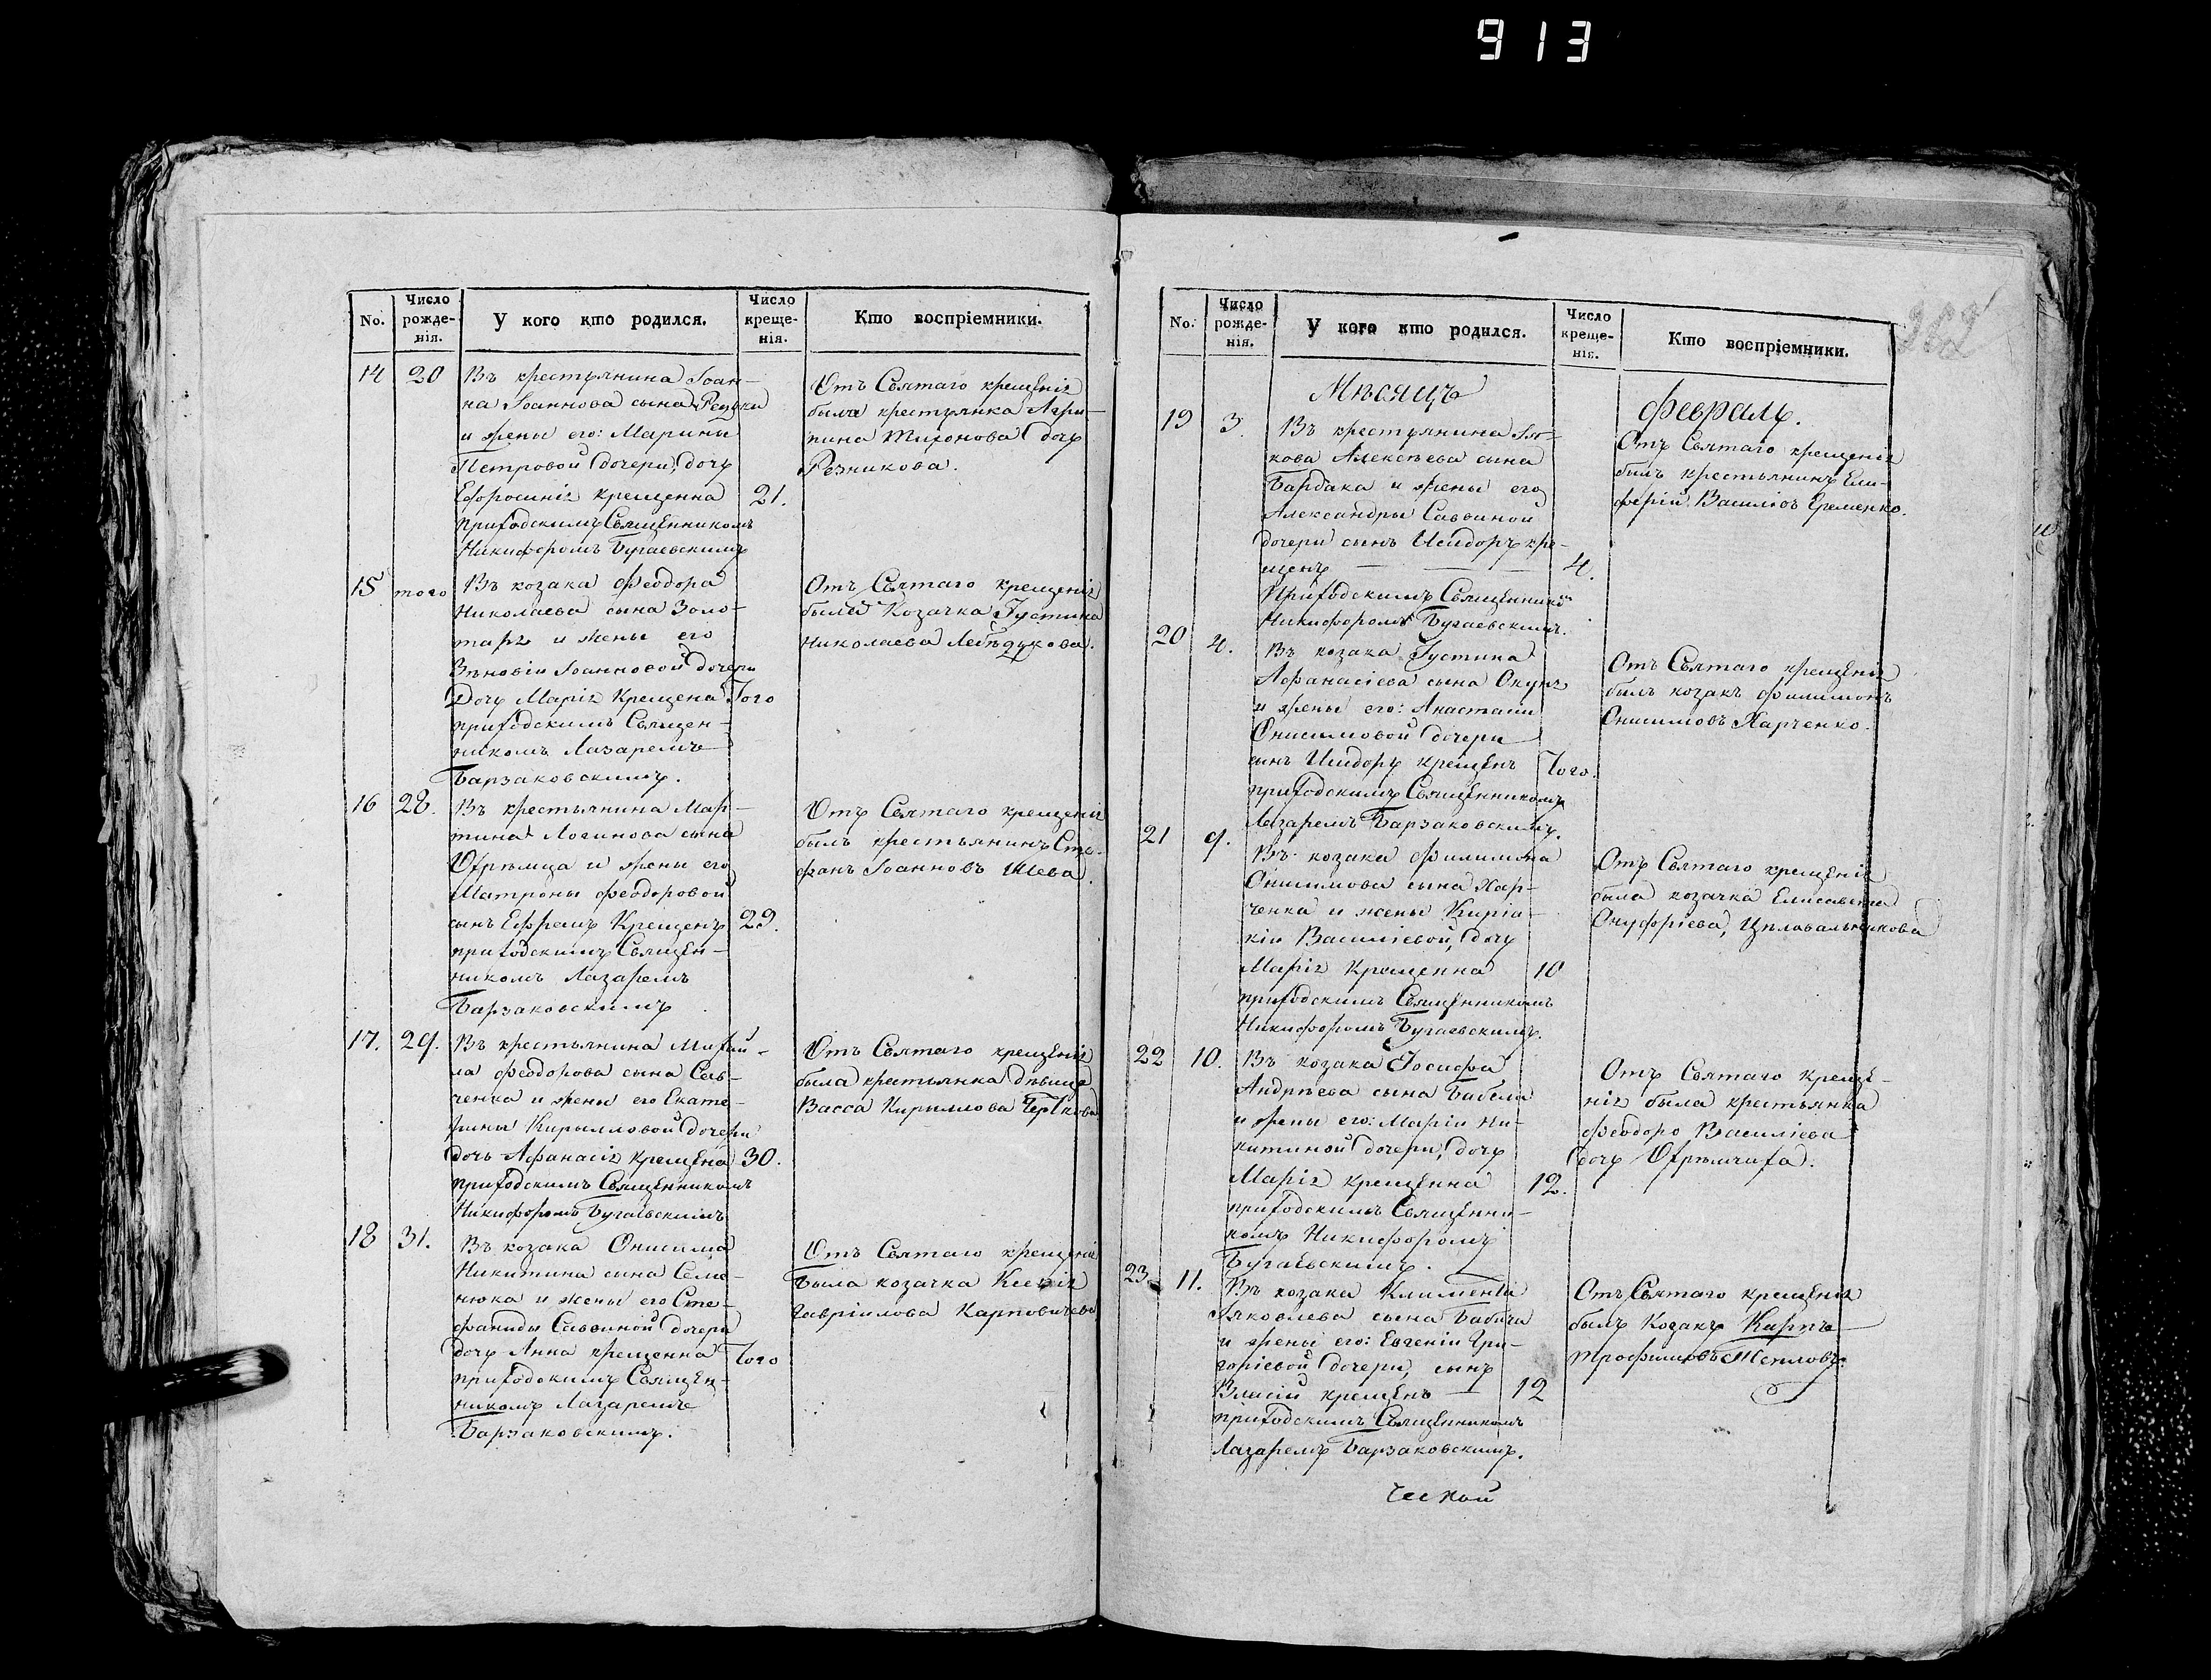 913
No.
Число рожде-нія.
У кого кто родился.
Число креще-нія.
Кто воспріемники.
14 20 Въ крестьянина Іоан-
на Іоаннова сына
и жены его: Марины
Петровой дочери, дочь
Ефросинія крещенна 21.
приходскимъ Священникомъ
Никифоромъ Бугаевскимъ
Отъ Святаго крещенія
была крестьянка Агри-
пина Тихонова дочь
Резникова.
15 того Въ козака Феодора
Николаева сына Золо-
таря и жены его
Зѣновіи Іоанновой дочери
Дочь Марія Крещена Того
приходскимъ Священ-
никомъ Лазаремъ
Барзаковскимъ.
Отъ Святаго крещенія
была Козачка Іустина
Николаева
16 28. Въ крестьянина Мар-
тина Логинова сына
Охрѣмца и жены его
Матроны Феодоровой
сынъ Ефремъ Крещенъ 29.
приходскимъ Священ-
никомъ Лазаремъ
Барзаковскимъ
Отъ Святаго крещенія
былъ крестьянинъ Сте-
фанъ Іоанновъ Шева.
17. 29. Въ крестьянина Михай-
ла Феодорова сына Сав-
ченка и жены его Екате-
рины Кирылловой дочери
дочь Афанасія крещена 30.
приходскимъ Священникомъ
Никифоромъ Бугаевскимъ
Отъ Святаго крещенія
была крестьянка дѣвица
Васса Кириллова
18 31. Въ козака Онисима
Никитина сына Семе-
нюка и жены его Сте-
фаниды Саввиной дочери
дочь Анна крещенна Того
приходскимъ Священ-
никомъ Лазаремъ
Барзаковскимъ.
Отъ Святаго крещенія
Была козачка Ксенія
Гавріилова Карповичева
362
No.
Число рожде-нія.
У кого кто родился.
Число креще-нія.
Кто воспріемники.
Мѣсяцъ Февраль.
19 3. Въ крестьянина Іа-
кова Алексѣева сына
Барбака и жены его
Александры Саввиной
дочери сынъ Исидоръ кре-
щенъ — — — 4.
Приходскимъ Священнико
Никифоромъ Бугаевскимъ.
Отъ Святаго крещенія
былъ крестьянинъ Ели-
ферій Василіовъ Еременко.
20 4. Въ козака Іустина
Афанасіева сына Окуня
и жены его: Анастасіи
Онисимовой дочери
сынъ Исидоръ крещенъ Того.
приходскимъ Священникомъ
Лазаремъ Барзаковскимъ.
Отъ Святаго крещенія
былъ козакъ Филимонъ
Онисимовъ Харченко.
21 9. Въ козака Филимона
Онисимова сына Хар-
ченка и жены Киріа-
кіи Василіевой, дочь
Марія Крещенна 10
приходскимъ Священникомъ
Никифоромъ Бугаевскимъ.
Отъ Святаго крещенія
была козачка Елисавета
Онуфріева, Цѣловальникова
22 10. Въ козака Іосифа
Андрѣева сына Бабели
и жены его: Маріи Ни-
китиной дочери, дочь
Марія крещенна 12.
приходскимъ Священни-
комъ Никифоромъ
Бугаевскимъ.
Отъ Святаго креще-
нія была крестьянка
Феодора Василіева
дочь Охрѣмчиха.
23. 11. Въ козака Климентія
Яковлева сына Бабича
и жены его: Евгеніи Гри-
горіевой дочери, сынъ
Власій крещенъ — 12
приходскимъ Священникомъ
Лазаремъ Барзаковскимъ.
Отъ Святаго крещенія
былъ Козакъ Карпъ
Трофимовъ